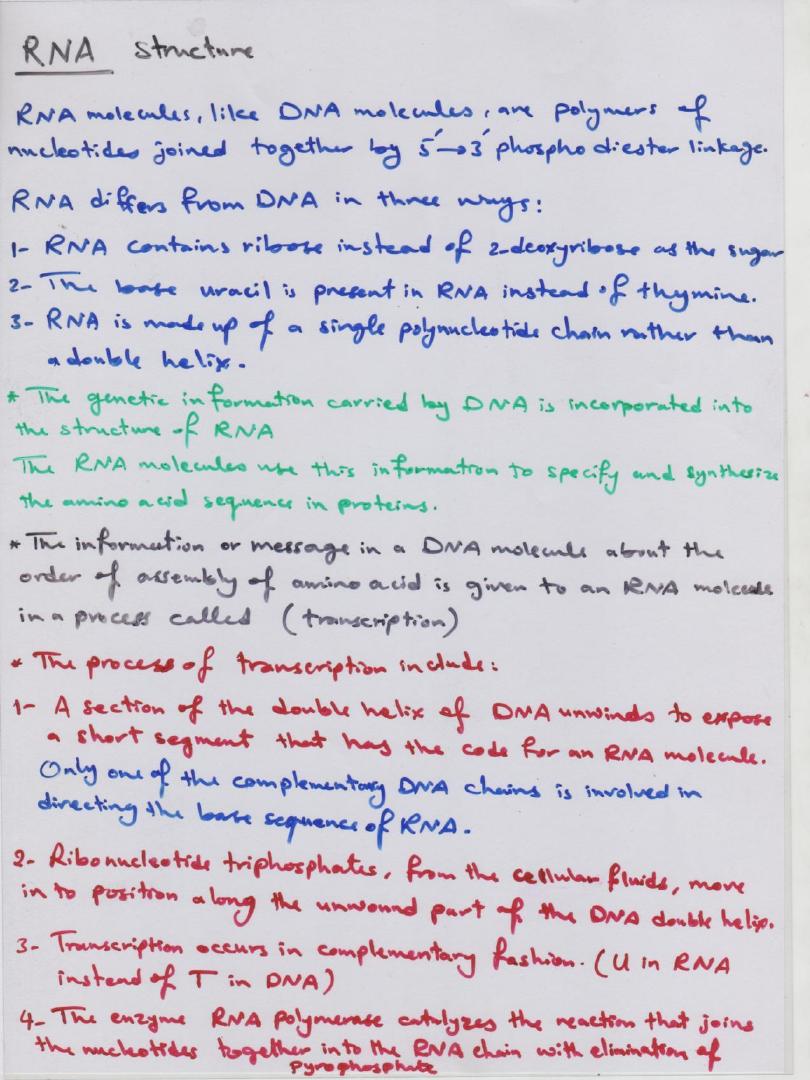 RNA structure
RNA molecules, like DNA molecules, are polymers of
nucleotides joined together by 5′→3′ phosphodiester linkage.
RNA differs from DNA in three ways:
1- RNA contains ribose instead of 2-deoxyribose as the sugar
2- The base uracil is present in RNA instead of thymine.
3- RNA is made up of a single polynucleotide chain rather than
a double helix.
* The genetic information carried by DNA is incorporated into
the structure of RNA
The RNA molecules use this information to specify and synthesize
the amino acid sequence in proteins.
* The information or message in a DNA molecule about the
order of assembly of amino acid is given to an RNA molecule
in a process called (transcription)
* The process of transcription include:
1- A section of the double helix of DNA unwinds to expose
a short segment that has the code for an RNA molecule.
Only one of the complementary DNA chains is involved in
directing the base sequence of RNA.
2- Ribonucleotide triphosphates, from the cellular fluids, move
in to position along the unwound part of the DNA double helix.
3- Transcription occurs in complementary fashion. (U in RNA
instead of T in DNA)
4- The enzyme RNA polymerase catalyzes the reaction that joins
the nucleotides together into the RNA chain with elimination of
pyrophosphate